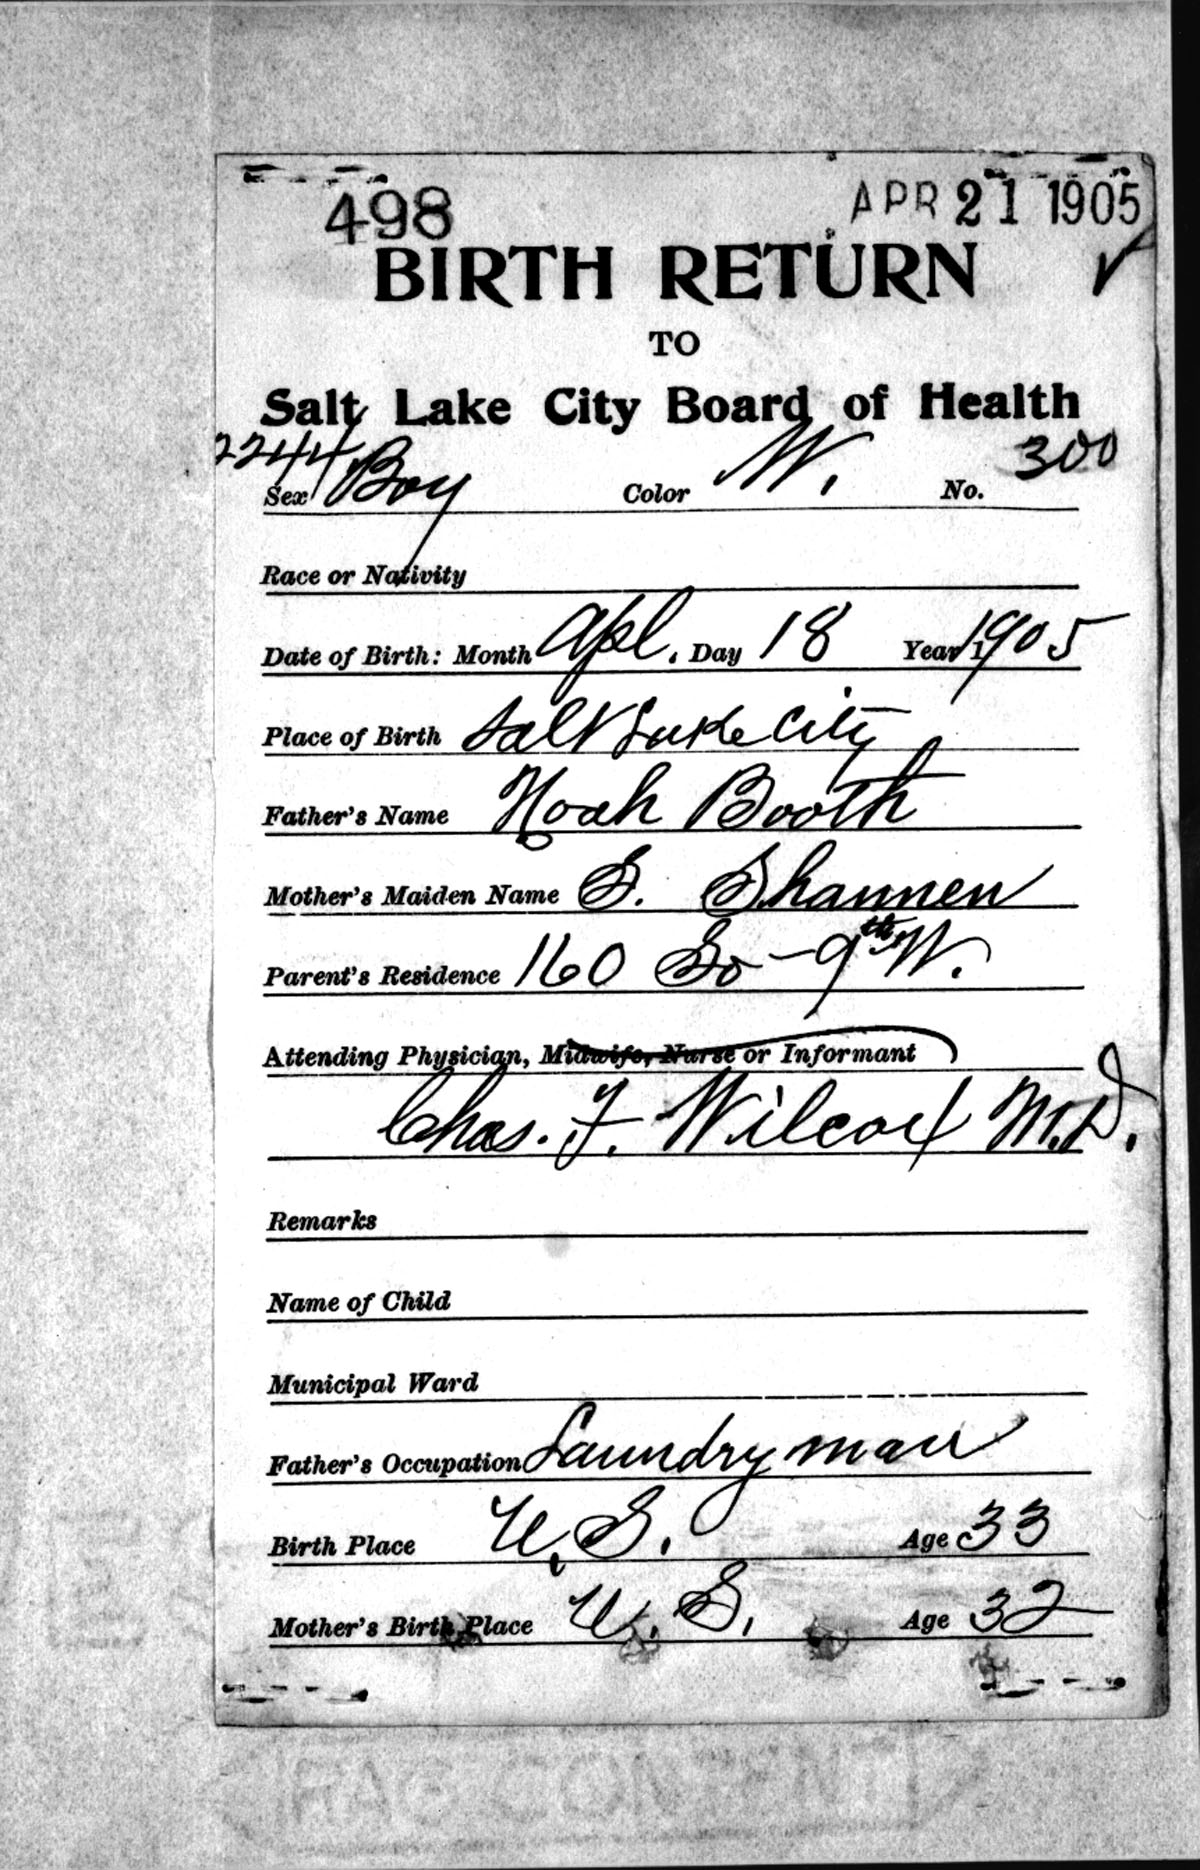 498 APR 21 1905
BIRTH RETURN
TO
Salt Lake City Board of Health
2244
Sex Boy Color W. No. 300
Race or Nativity
Date of Birth: Month Apl. Day 18 Year 1905
Place of Birth Salt Lake City
Father's Name Noah Booth
Mother's Maiden Name S. Shannen
Parent's Residence 160 So - 9th W.
Attending Physician, Midwife, Nurse or Informant
Chas. F. Wilcox M.D.
Remarks
Name of Child
Municipal Ward
Father's Occupation Laundryman
Birth Place U.S. Age 33
Mother's Birth Place U.S. Age 32